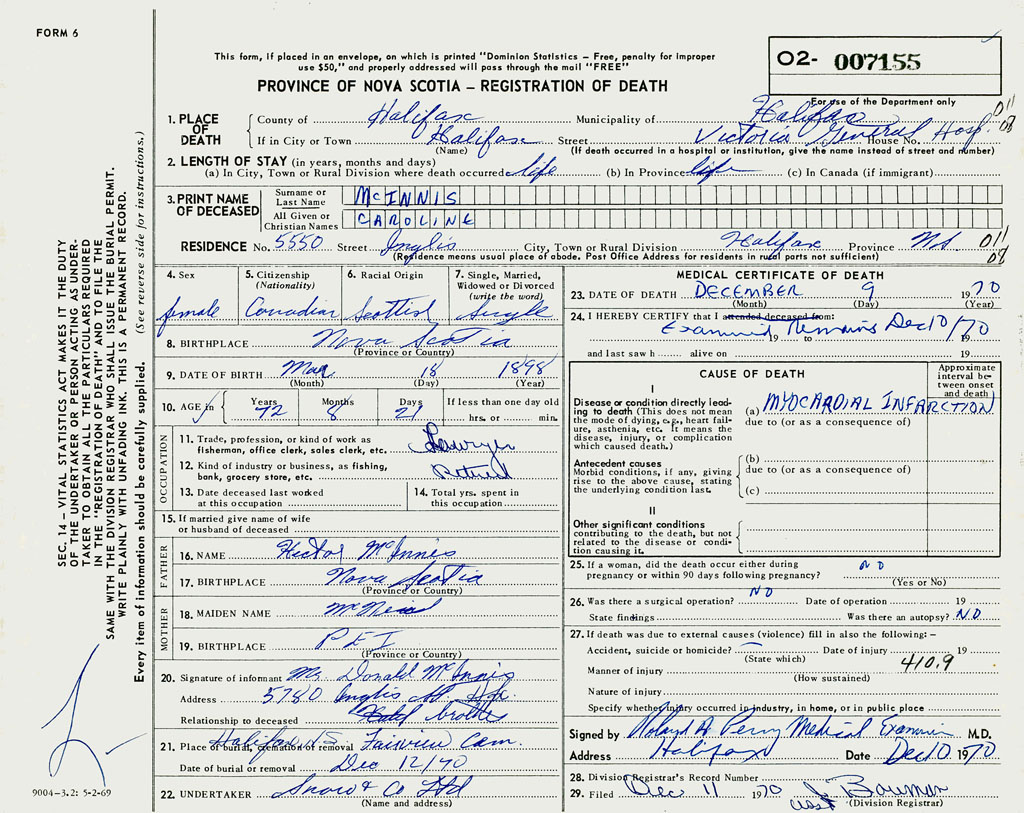 FORM 6
This form, if placed in an envelope, on which is printed "Dominion Statistics – Free, penalty for improper
use $50," and properly addressed will pass through the mail "FREE"
O2- 007155
PROVINCE OF NOVA SCOTIA – REGISTRATION OF DEATH
For use of the Department only
1. PLACE OF DEATH County of Halifax Municipality of Halifax 011
If in City or Town Halifax Street Victoria General Hosp. House No. 08
(Name) (If death occurred in a hospital or institution, give the name instead of street and number)
2. LENGTH OF STAY (in years, months and days)
(a) In City, Town or Rural Division where death occurred life (b) In Province life (c) In Canada (if immigrant)
3. PRINT NAME OF DECEASED Surname or Last Name McINNIS
All Given or Christian Names CAROLINE
RESIDENCE No. 5550 Street Inglis City, Town or Rural Division Halifax Province NS 011
(Residence means usual place of abode. Post Office Address for residents in rural parts not sufficient) 08
4. Sex 5. Citizenship (Nationality) 6. Racial Origin 7. Single, Married, Widowed or Divorced (write the word)
female Canadian Scottish Single
8. BIRTHPLACE Nova Scotia
(Province or Country)
9. DATE OF BIRTH Mar 18 1898
(Month) (Day) (Year)
10. AGE in Years Months Days If less than one day
72 8 21 hrs. or min.
OCCUPATION
11. Trade, profession, or kind of work as
fisherman, office clerk, sales clerk, etc. Lawyer
12. Kind of industry or business, as fishing,
bank, grocery store, etc. Retired
13. Date deceased last worked
at this occupation
14. Total yrs. spent in
this occupation
15. If married give name of wife
or husband of deceased
FATHER
16. NAME Hector McInnis
17. BIRTHPLACE Nova Scotia
(Province or Country)
MOTHER
18. MAIDEN NAME
19. BIRTHPLACE PEI
(Province or Country)
20. Signature of informant Donald McInnis
Address 5780 Inglis St. Hfx.
Relationship to deceased brother
21. Place of burial, cremation or removal Halifax N.S. Fairview Cem.
Date of burial or removal Dec 12/70
22. UNDERTAKER Snow & Co Ltd
(Name and address)
MEDICAL CERTIFICATE OF DEATH
23. DATE OF DEATH DECEMBER 9 1970
(Month) (Day) (Year)
24. I HEREBY CERTIFY that I attended deceased from:
Examined Remains Dec 10/70
19 to 19
and last saw h alive on 19
CAUSE OF DEATH
Approximate interval between onset and death
I
Disease or condition directly leading to death (This does not mean the mode of dying, e.g., heart failure, asthenia, etc. It means the disease, injury, or complication which caused death.)
(a) MYOCARDIAL INFARCTION
due to (or as a consequence of)
Antecedent causes
Morbid conditions, if any, giving rise to the above cause, stating the underlying condition last.
(b)
due to (or as a consequence of)
(c)
II
Other significant conditions
contributing to the death, but not
related to the disease or condition causing it.
25. If a woman, did the death occur either during
pregnancy or within 90 days following pregnancy? NO
(Yes or No)
26. Was there a surgical operation? NO Date of operation 19
State findings Was there an autopsy? NO
27. If death was due to external causes (violence) fill in also the following: –
Accident, suicide or homicide? Date of injury 19
(State which) 410.9
Manner of injury
(How sustained)
Nature of injury
Specify whether injury occurred in industry, in home, or in public place
Signed by Roland A Perry Medical Examiner M.D.
Address Halifax Date Dec 10 1970
28. Division Registrar's Record Number
29. Filed Dec 11 1970 Bauman
(Division Registrar)
SEC. 14 – VITAL STATISTICS ACT MAKES IT THE DUTY
OF THE UNDERTAKER OR PERSON ACTING AS UNDER-
TAKER TO OBTAIN ALL THE PARTICULARS REQUIRED
IN THE "REGISTRATION OF DEATH" AND TO FILE THE
SAME WITH THE DIVISION REGISTRAR WHO SHALL ISSUE THE BURIAL PERMIT.
WRITE PLAINLY WITH UNFADING INK. THIS IS A PERMANENT RECORD.
Every item of information should be carefully supplied. (See reverse side for instructions.)
9004-3.2: 5-2-69